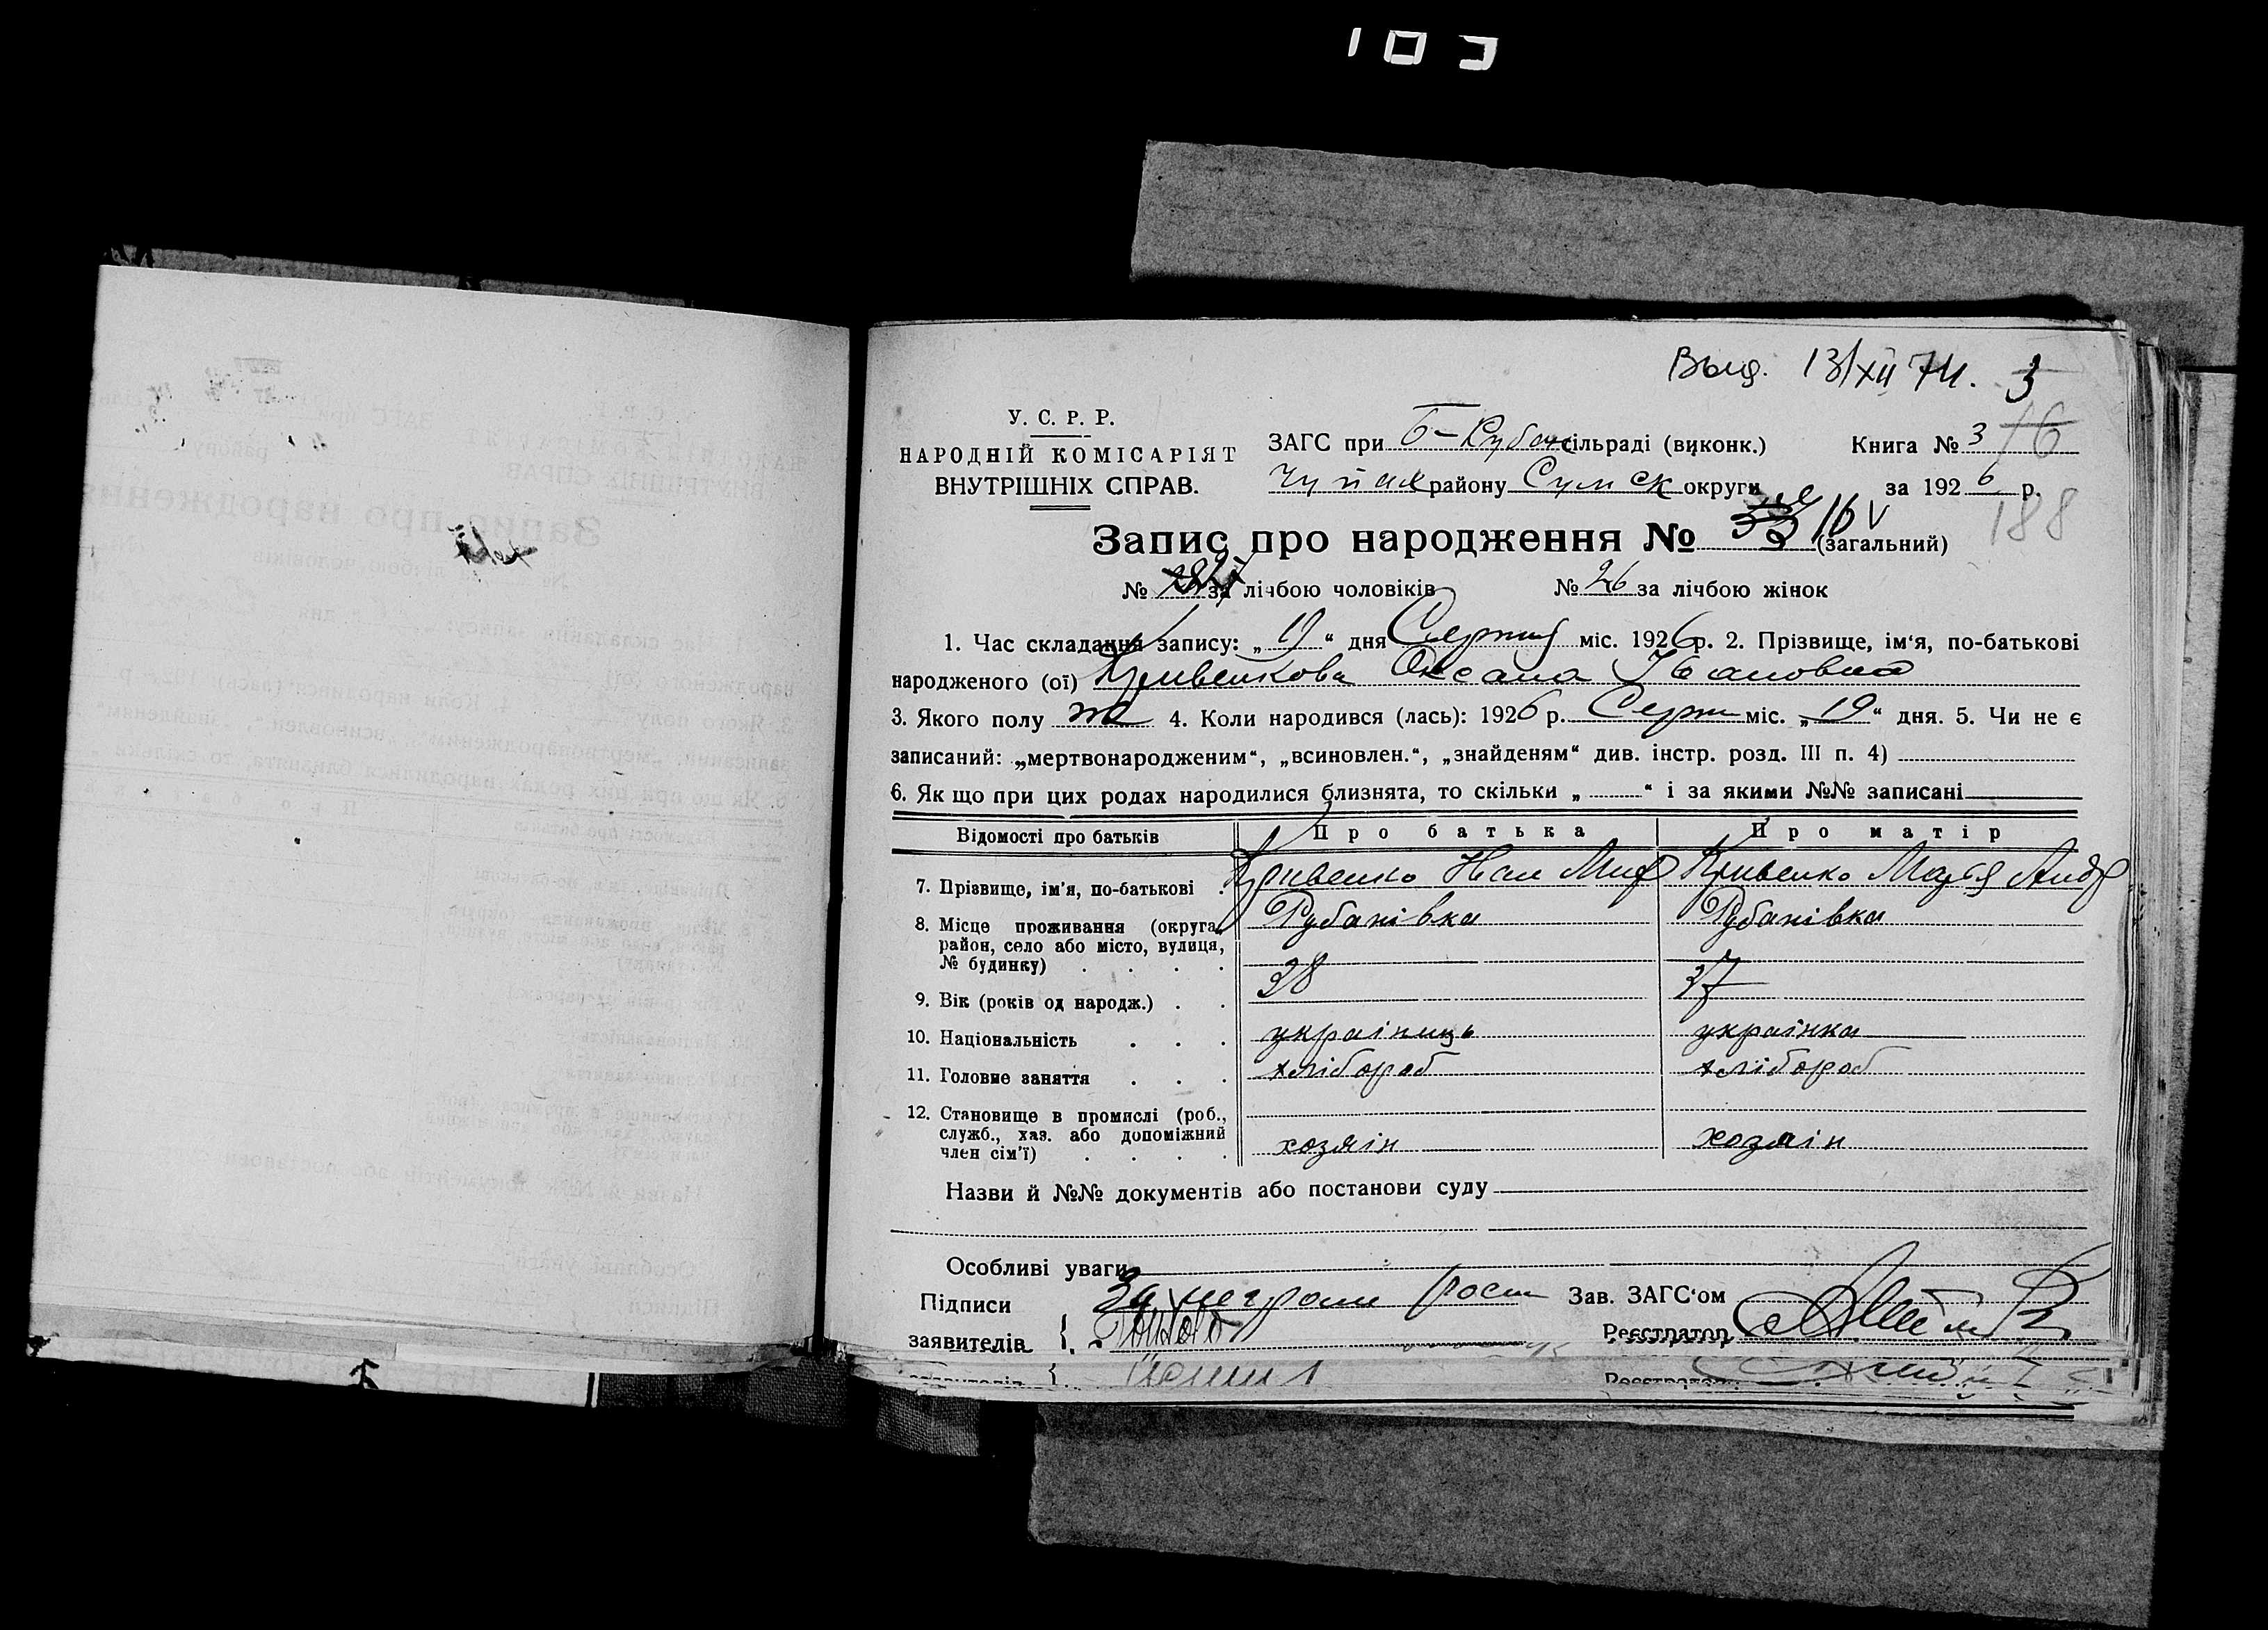 103
Выд. 13/XII 74. 3
У. С. Р. Р.
НАРОДНІЙ КОМІСАРІЯТ
ВНУТРІШНІХ СПРАВ.
ЗАГС при Б-Рубан сільраді (виконк.) Книга № 3 16
району Сумск округи за 1926 р.
188
Запис про народження № 16 (загальний)
№ за лічбою чоловіків № 26 за лічбою жінок
1. Час складання запису: „19“ дня Серпня міс. 1926 р. 2. Прізвище, ім‘я, по-батькові
народженого (ої) Кривенкова Оксана Ивановна
3. Якого полу ж 4. Коли народився (лась): 1926 р. Серпн міс. „19“ дня. 5. Чи не є
записаний: „мертвонародженим“, „всиновлен.“, „знайденям“ див. інстр. розд. III п. 4)
6. Як що при цих родах народилися близнята, то скільки „ “ і за якими №№ записані
Відомості про батьків Про батька Про матір
7. Прізвище, ім'я, по-батькові Кривенко Иван Мит Кривенко Марья Андр
8. Місце проживання (округа, Рубанівка Рубанівка
район, село або місто, вулиця,
№ будинку)
9. Вік (років од народж.) 38 37
10. Національність украінць украінка
11. Головне заняття хлібороб хлібороб
12. Становище в промислі (роб.,
служб., хаз. або допоміжний
член сім'ї) хозяін хозяін
Назви й №№ документів або постанови суду
Особливі уваги
Підписи За неграм рост Зав. ЗАГС‘ом
заявителів Реєстратор
Реєстратор